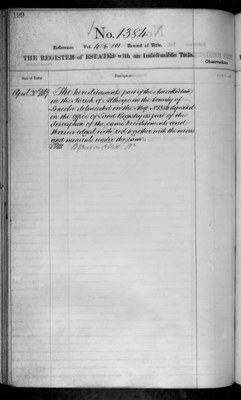 199
No. 1384
Reference Vol. Record of Title.
THE REGISTER of ESTATES with an Indefeasible Title.
Observations
Date of Entry Description
April 3rd 1867 The hereditaments part of the
in the Parish of Althorpe in the County of
Lincoln delineated on the Map No. 1384 deposited
in the Office of Land Registry as part of the
description of the same hereditaments and
thereon edged with red together with the mines
and minerals under the same